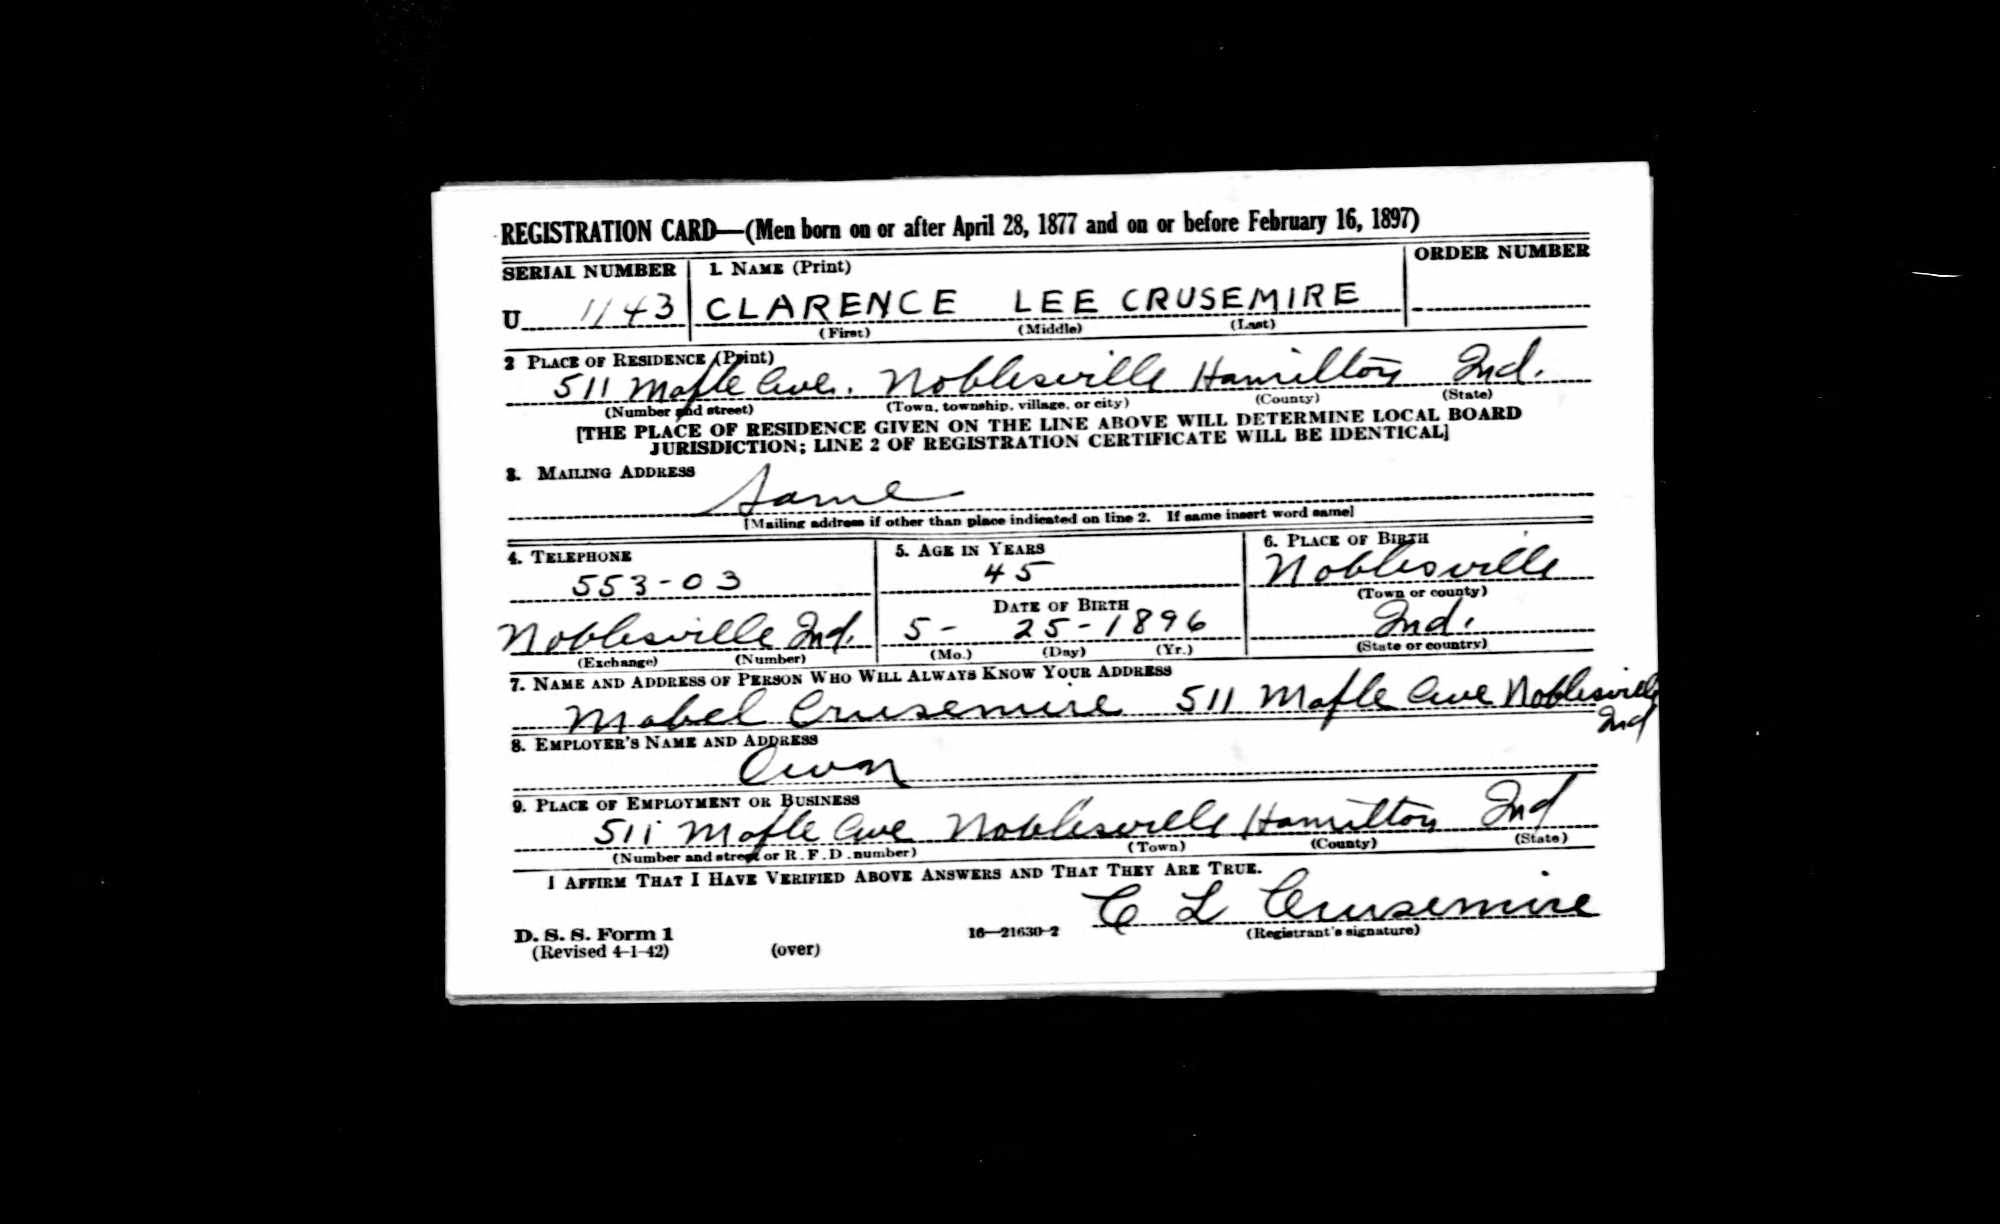 REGISTRATION CARD—(Men born on or after April 28, 1877 and on or before February 16, 1897)
SERIAL NUMBER 1. NAME (Print) ORDER NUMBER
U 1143 CLARENCE LEE CRUSEMIRE
(First) (Middle) (Last)
2 PLACE OF RESIDENCE (Print)
511 Maple Ave. Noblesville Hamilton Ind.
(Number and street) (Town, township, village, or city) (County) (State)
[THE PLACE OF RESIDENCE GIVEN ON THE LINE ABOVE WILL DETERMINE LOCAL BOARD
JURISDICTION; LINE 2 OF REGISTRATION CERTIFICATE WILL BE IDENTICAL]
3. MAILING ADDRESS
Same
[Mailing address if other than place indicated on line 2. If same insert word same]
4. TELEPHONE 5. AGE IN YEARS 6. PLACE OF BIRTH
553-03 45 Noblesville
DATE OF BIRTH (Town or county)
Noblesville Ind. 5- 25-1896 Ind.
(Exchange) (Number) (Mo.) (Day) (Yr.) (State or country)
7. NAME AND ADDRESS OF PERSON WHO WILL ALWAYS KNOW YOUR ADDRESS
Mabel Crusemire 511 Maple Ave Noblesville
Ind
8. EMPLOYER'S NAME AND ADDRESS
Own
9. PLACE OF EMPLOYMENT OR BUSINESS
511 Maple Ave Noblesville Hamilton Ind
(Number and street or R. F. D. number) (Town) (County) (State)
I AFFIRM THAT I HAVE VERIFIED ABOVE ANSWERS AND THAT THEY ARE TRUE.
C L Crusemire
D. S. S. Form 1 16—21630-2 (Registrant's signature)
(Revised 4-1-42) (over)